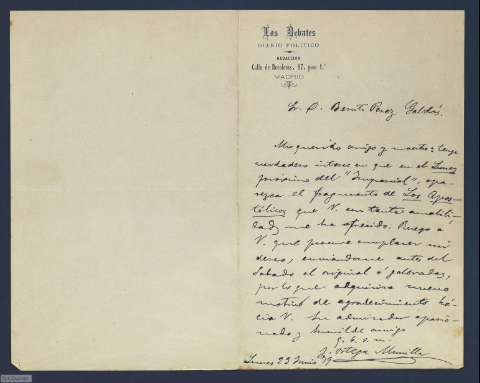 Los Debates
DIARIO POLÍTICO
REDACCIÓN
Calle de Recoletos, 17, pral 1.ª
MADRID
Sr. D. Benito Perez Galdós.
Mi querido amigo y maestro: tengo
verdadero interes en que en el Lunes
proximo del "Imparcial", apa-
rezca el fragmento de Los Apos-
tólicos que V. con tanta amabili-
dad me ha ofrecido. Ruego a
V. que procure complacer mi
deseo, enviandome antes del
Sabado el original ó galeradas,
por lo que adquirirá nuevo
motivo de agradecimiento há-
cia V. su admirador apasio-
nado y humilde amigo
q. b. s. m.
J. Ortega Munilla
Lunes 23 Junio 79